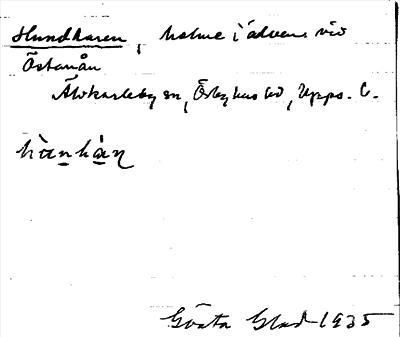 Hundharen, holme i älven vid
Östanån
Älvkarleby sn, Örbyhus hd, Upps. l.
hùnhàn
Gösta Glad 1935